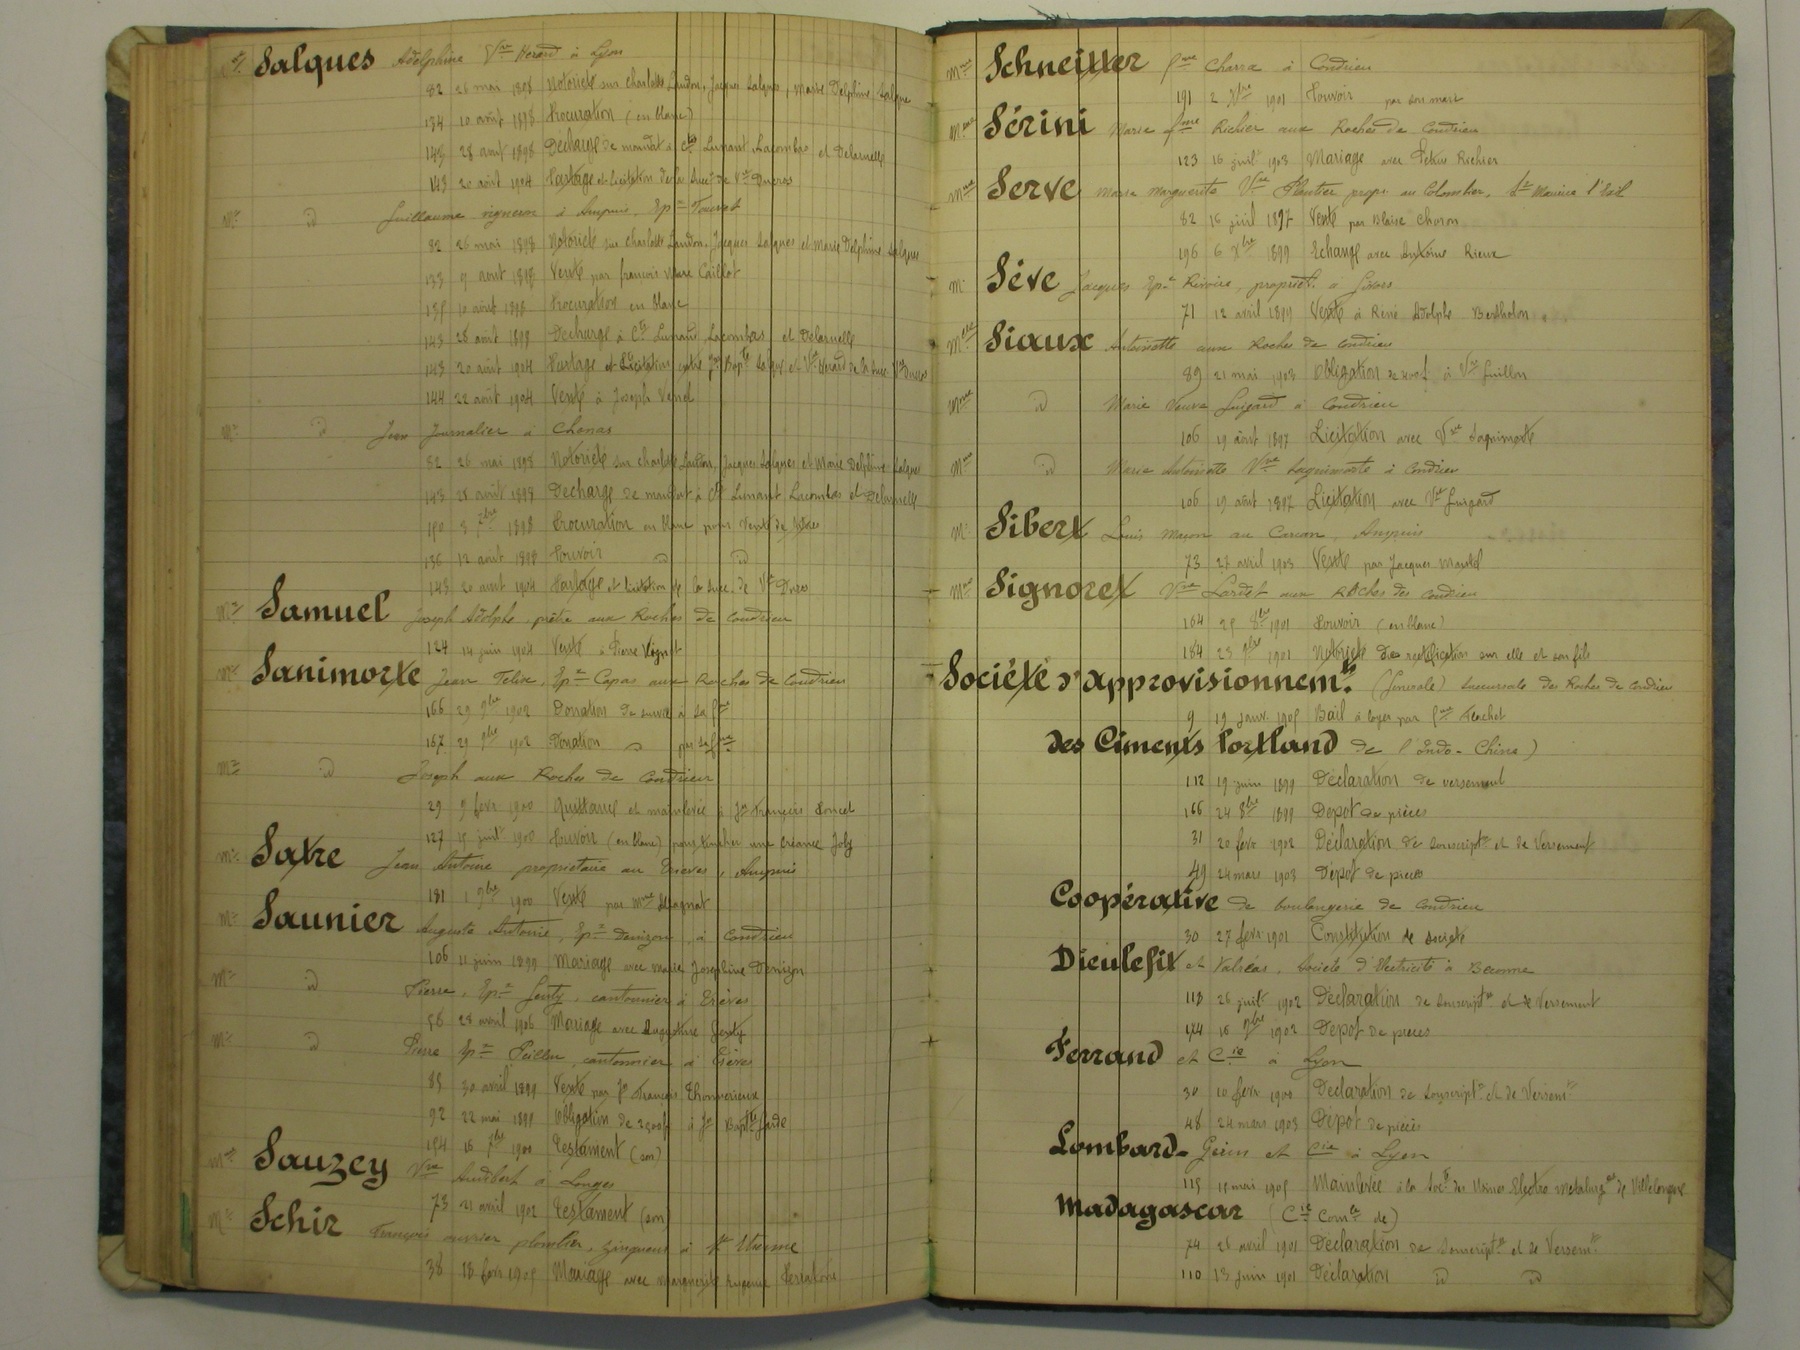 Salques Adelphine Vve Verard à Lyon
82 26 mai 1898 Notoriété sur charlotte Landon, Jacques Salques, Marie Delphine Salque
134 10 août 1898 Procuration (en blanc)
143 28 août 1898 Décharge de mandat à Cts Lumant, Lacombas et Delarnelle
143 20 août 1904 Partage et licitation de la succ. de Vve Ducros
Mr d Guillaume vigneron à Ampuis, Ep= Tourret
82 26 mai 1898 Notoriété sur charlotte Landon, Jacques Salques et Marie Delphine Salque
133 9 août 1898 Vente par françois Caillot
135 10 août 1898 Procuration en blanc
143 28 août 1898 Décharge à Cts Lumant Lacombas et Delarnelle
143 20 août 1904 Partage et Licitation entre Jn Bapte Salque et Vve Verard de la succ. Vve Ducros
144 22 août 1904 Vente à Joseph Venel
Mr d Jean Journalier à Chenas
82 26 mai 1898 Notoriété sur charlotte Landon, Jacques Salques et Marie Delphine Salque
143 28 août 1898 Décharge de mandat à Cts Lumant Lacombas et Delarnelle
190 3 7bre 1898 Procuration en blanc pour vente de
136 12 août 1898 Pouvoir d d
143 20 août 1904 Partage et licitation de la succ. de Vve Ducros
Mr Samuel Joseph Adolphe, prêtre aux Roches de Condrieu
124 14 juin 1904 Vente à Pierre Vignat
Mr Sanimorte Jean Felix, Ep= Capas aux Roches de Condrieu
166 29 9bre 1902 Donation de survie à sa fme
167 29 9bre 1902 Donation d par sa fme
Mr d Joseph aux Roches de Condrieu
29 9 fevr 1900 Quittance et mainlevée à Jn François Poncet
127 15 juilt 1900 Pouvoir (en blanc) pour toucher une créance Joly
Mr Satre Jean Antoine propriétaire au Trèves, Ampuis
181 1 9bre 1900 Vente par Mme Magnat
Mr Saunier Auguste Antoine, Ep= Denizon, à Condrieu
106 11 juin 1899 Mariage avec Marie Josephine Denizon
Mr d Pierre, Ep= Genty, cantonnier à Trèves
58 28 avril 1906 Mariage avec Augustine Genty
Mr d Pierre Ep= Peillon, cantonnier à Trèves
85 30 avril 1899 Vente par Jn François Thonnerieux
92 22 mai 1899 Obligation de à Jn Bapte Garde
154 16 7bre 1900 Testament (son)
Mme Sauzey Vve Audibert à Longes
73 21 avril 1902 Testament (son)
Mr Schir François ouvrier plombier, zingueur à Vienne
38 18 fevr 1905 Mariage avec Marguerite Eugénie
Mme Schneitter fme Charra à Condrieu
191 2 Xbre 1901 Pouvoir par son mari
Mme Sérini Marie fme Richier aux Roches de Condrieu
123 16 juilt 1903 Mariage avec Petrus Richier
Mme Serve Marie Marguerite Vve Plantier propr. au Colombier, St Maurice l'Exil
82 16 juil 1897 Vente par Blaise Choron
196 6 Xbre 1899 Echange avec Antoine Rieux
M. Séve Jacques Ep= Rivoire, propriét. à Givors
71 12 avril 1899 Vente à René Adolphe Bertholon
Mlle Siaux Antoinette aux Roches de Condrieu
89 21 mai 1903 Obligation de à Vve Guillon
Mme d Marie Veuve Guigard à Condrieu
106 19 août 1897 Licitation avec Vve Saquimorte
Mme d Marie Antoinette Vve Saquimorte à Condrieu
106 19 août 1897 Licitation avec Vve Guigard
M. Sibert Louis maçon au Carcan, Ampuis
73 27 avril 1903 Vente par Jacques Mantel
Mme Signoret Vve Lardet aux Roches des Condrieu
164 25 8bre 1901 Pouvoir (en blanc)
164 23 9bre 1901 Notoriété des rectification sur elle et son fils
Société d'approvisionnemts. (Générale) succursale des Roches de Condrieu
9 19 janv. 1905 Bail à loyer par fme Flachet
des Ciments Portland de l'Indo-Chine)
112 19 juin 1899 Déclaration de versement
166 24 8bre 1899 Depot de pièces
31 20 fevr 1902 Déclaration de souscripton et de Versement
49 24 mars 1903 Dépot de pièces
Coopérative de boulangerie de Condrieu
30 27 fevr 1901 Constitution de société
Dieulefit et Valréas, Société d'Electricité à Beaune
118 26 juilt 1902 Déclaration de souscripton et de Versement
174 16 9bre 1902 Depot de pièces
Ferrand et Cie à Lyon
30 10 fevr 1900 Déclaration de souscripton et de Versemt
48 24 mars 1903 Dépot de pièces
Lombard-Gerin et Cie à Lyon
115 15 mai 1905 Mainlevée à la Socté des Usines Electro Métallurgques de Villelongue
Madagascar (Cie Comle de)
74 26 avril 1901 Déclaration de souscripton et de Versemt
110 13 juin 1901 Déclaration d d